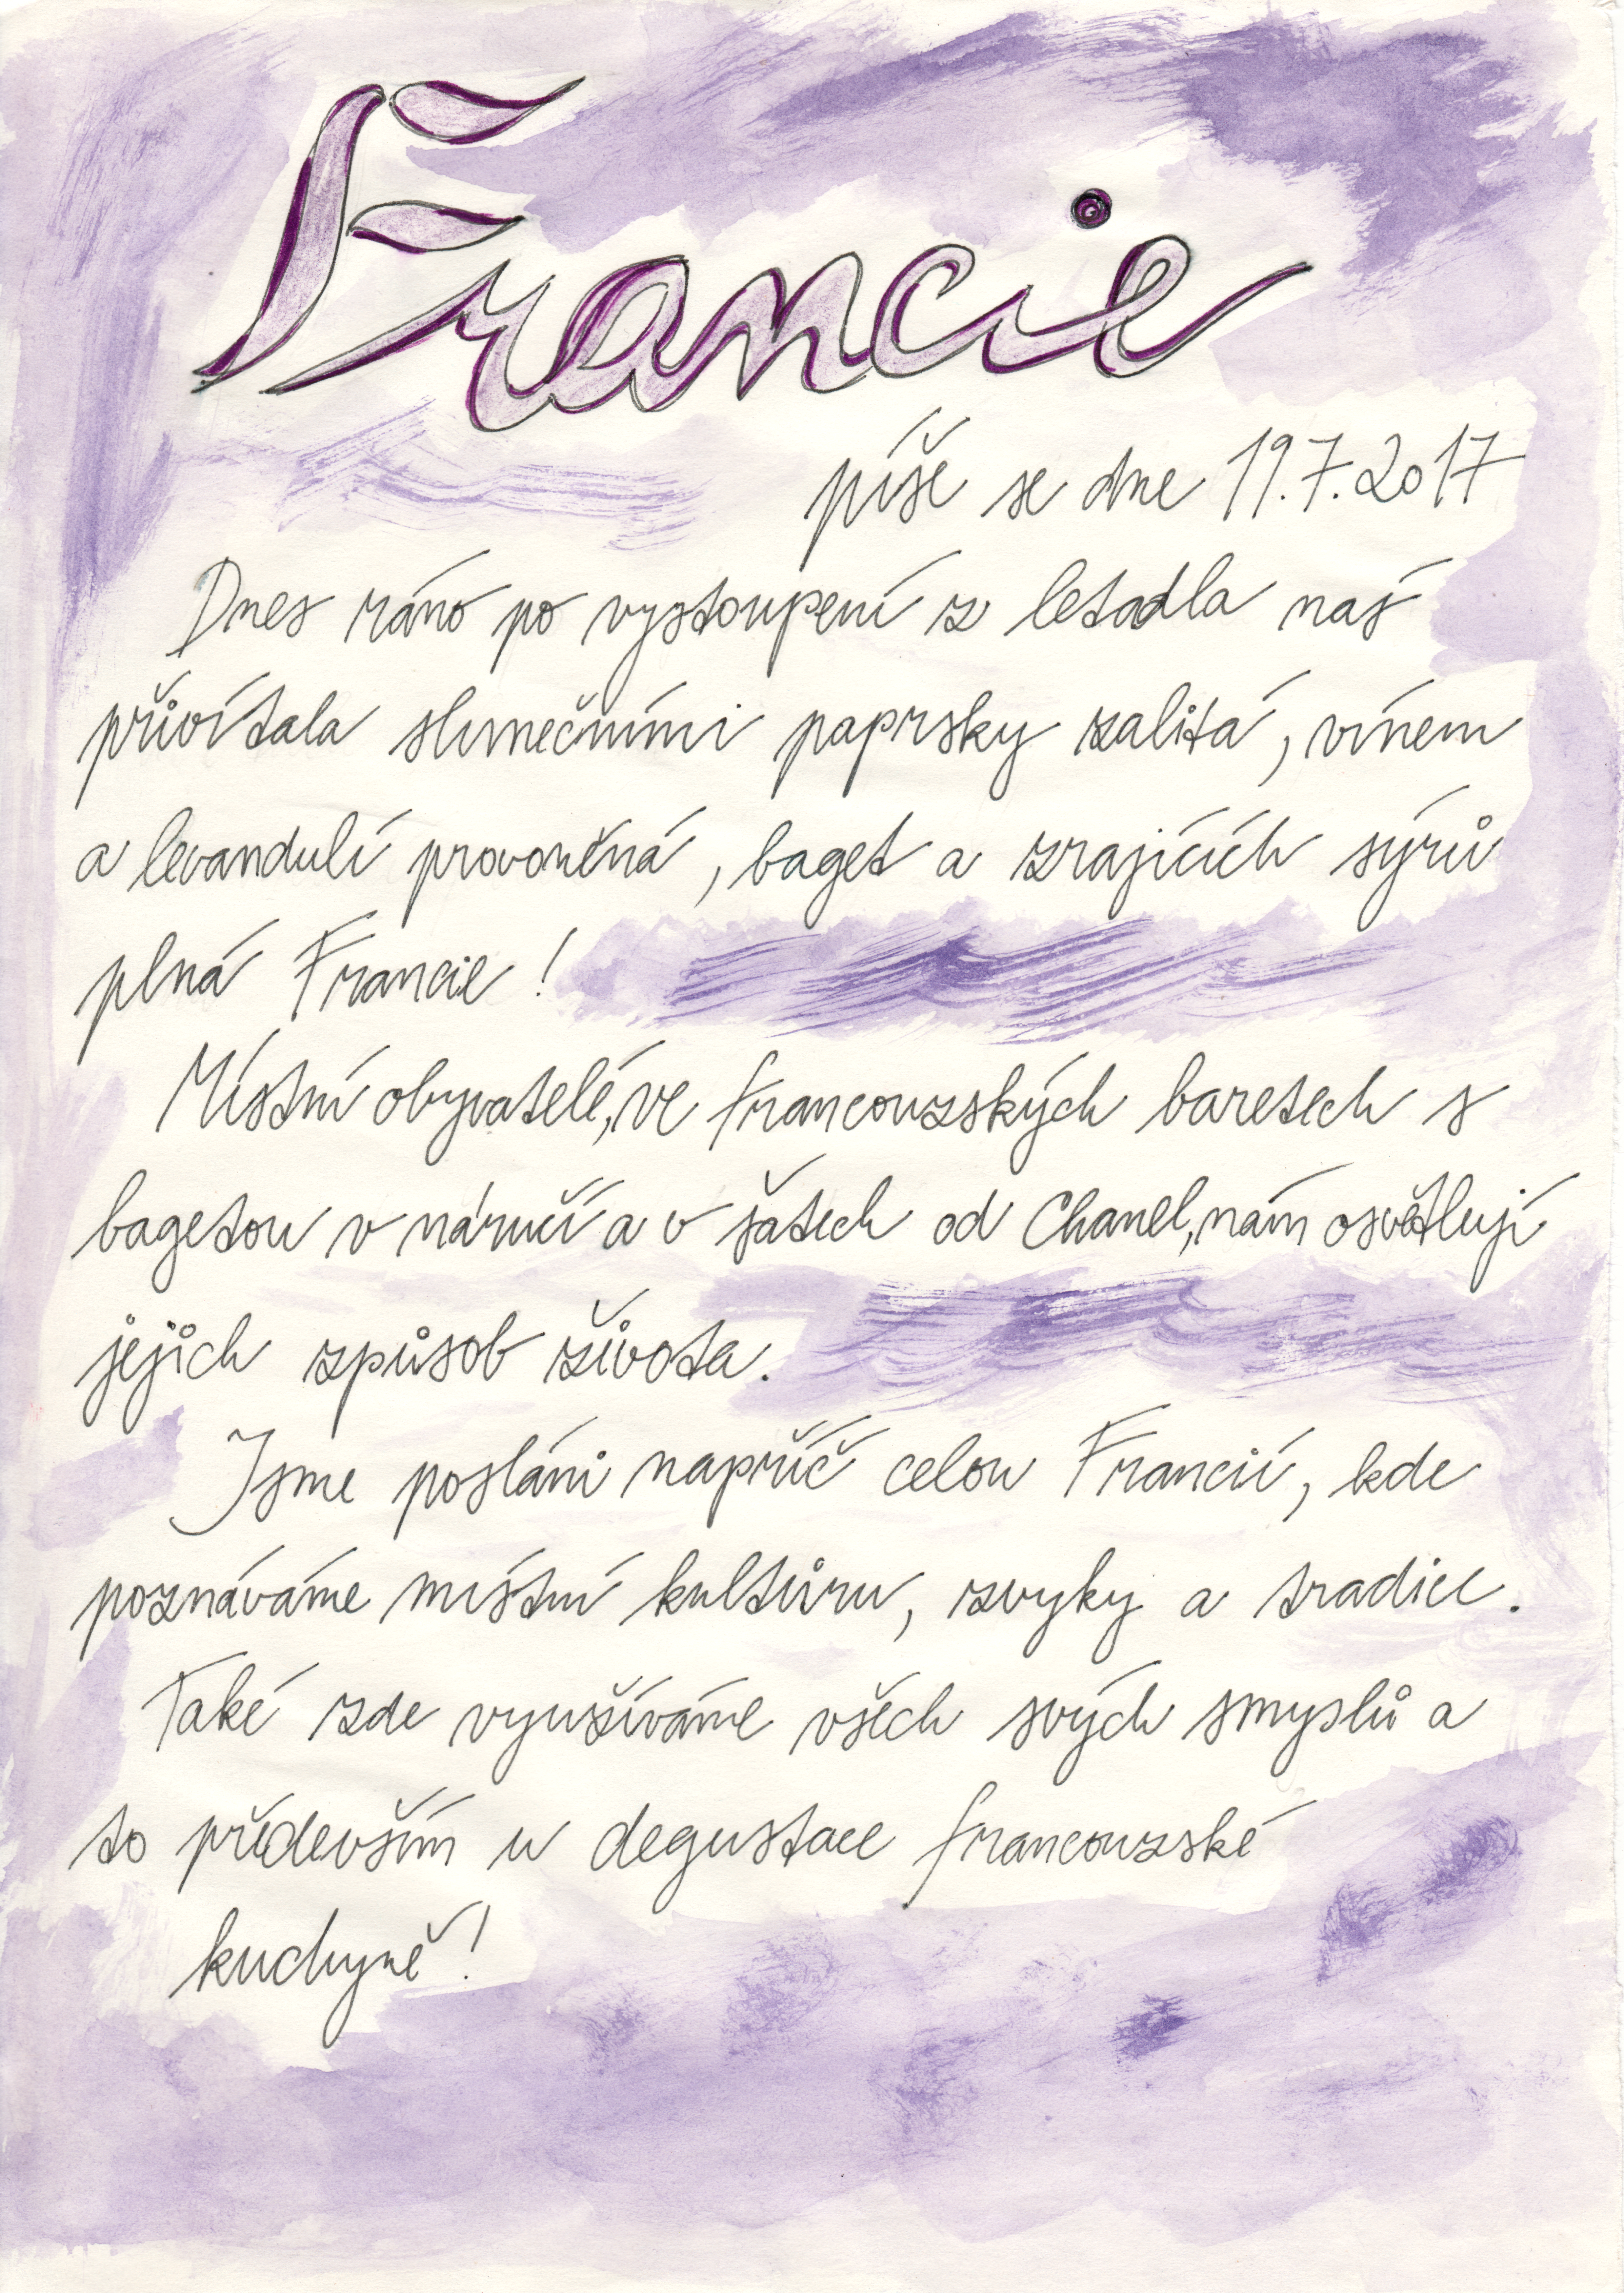 Francie
píše se dne 19.7.2017
Dnes ráno po vystoupení z letadla nás
přivítala slunečními paprsky zalitá, vínem
a levandulí provoněná, baget a zrajících sýrů
plná Francie!
Místní obyvatelé, ve francouzských baretech s
bagetou v náručí a v šatech od Chanel, nám osvětlují
jejich způsob života.
Jsme posláni napříč celou Francií, kde
poznáváme místní kulturu, zvyky a tradice.
Také zde využíváme všech svých smyslů a
to především u degustace francouzské
kuchyně!